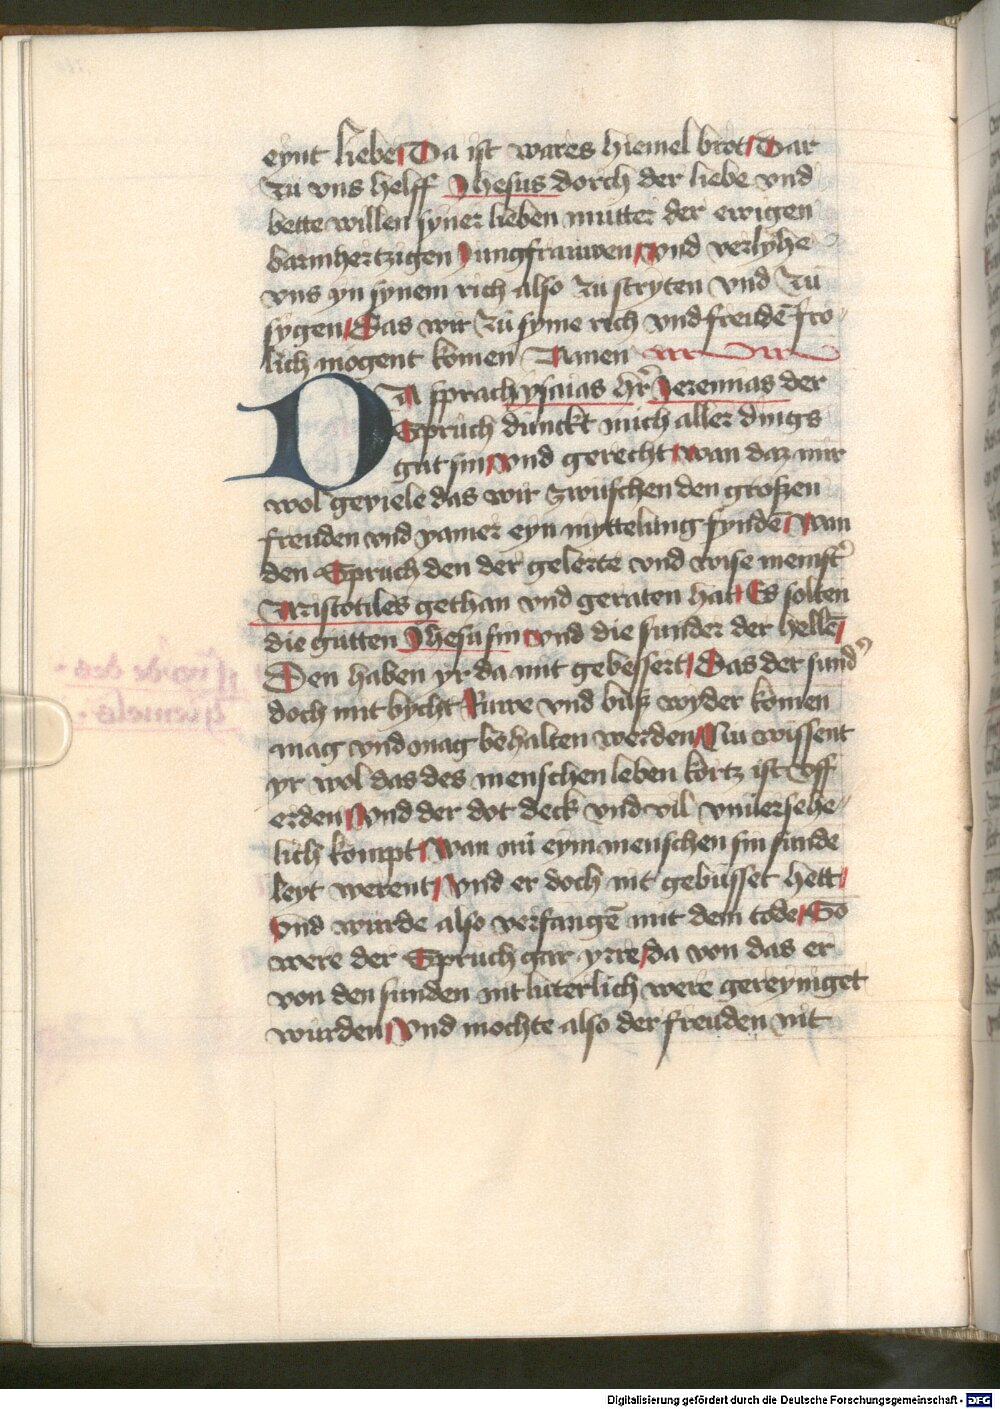 eynt liebe Da ist wares hiemel brot Dar
zu vns helff Jhesus dorch der liebe vnd
bette willen syner lieben mutter der ewigen
barmhertzigen Jungfrauwen vnd verlyhe
vns yn synem rich also zu stryten vnd zu
sygen Das wir zu syme rich vnd freudē fro
lich mogent komen Amen
DA sprach ysaias hr̄ Jeremias der
Spruch dunckt mich aller dings
gut sin vnd gerecht wan daz mir
wol geviele das wir zwuschen den großen
freuden vnd yamer eyn myttelung fyndē wan
den Spruch den der gelerte vnd wise meinst̄
Aristotiles gethan vnd geraten hat Es solten
die gutten Jhesu sin vnd die sunder der hellē
Den haben yr da mit gebessert Das der sund
doch mit bycht Ruwe vnd buß wyder komen
mag vnd mag behalten werden Nu wissent
yr wol das des menschen leben kortz ist vff
erden vnd der dot deck vnd vil vnuersehe
lich kompt wan nu eym menschen sin sunde
leyt werent vnd er doch nit gebusset hett
vnd wurde also verfangē mit dem tode So
were der Spruch gar yrre da von das er
von den sunden nit luterlich were gereyniget
wurden vnd mochte also der freuden nit
Digitalisierung gefördert durch die Deutsche Forschungsgemeinschaft - DFG